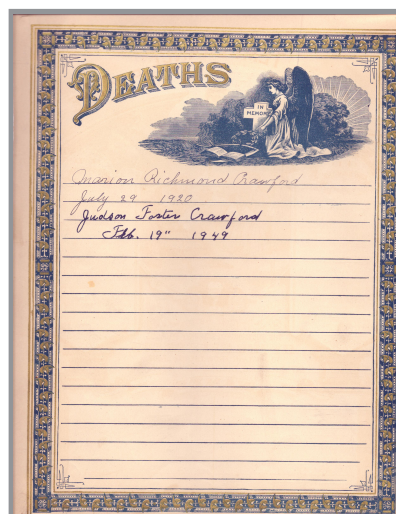 DEATHS
IN
MEMORY
Marion Richmond Crawford
July 29 1920
Judson Foster Crawford
Feb. 19" 1949